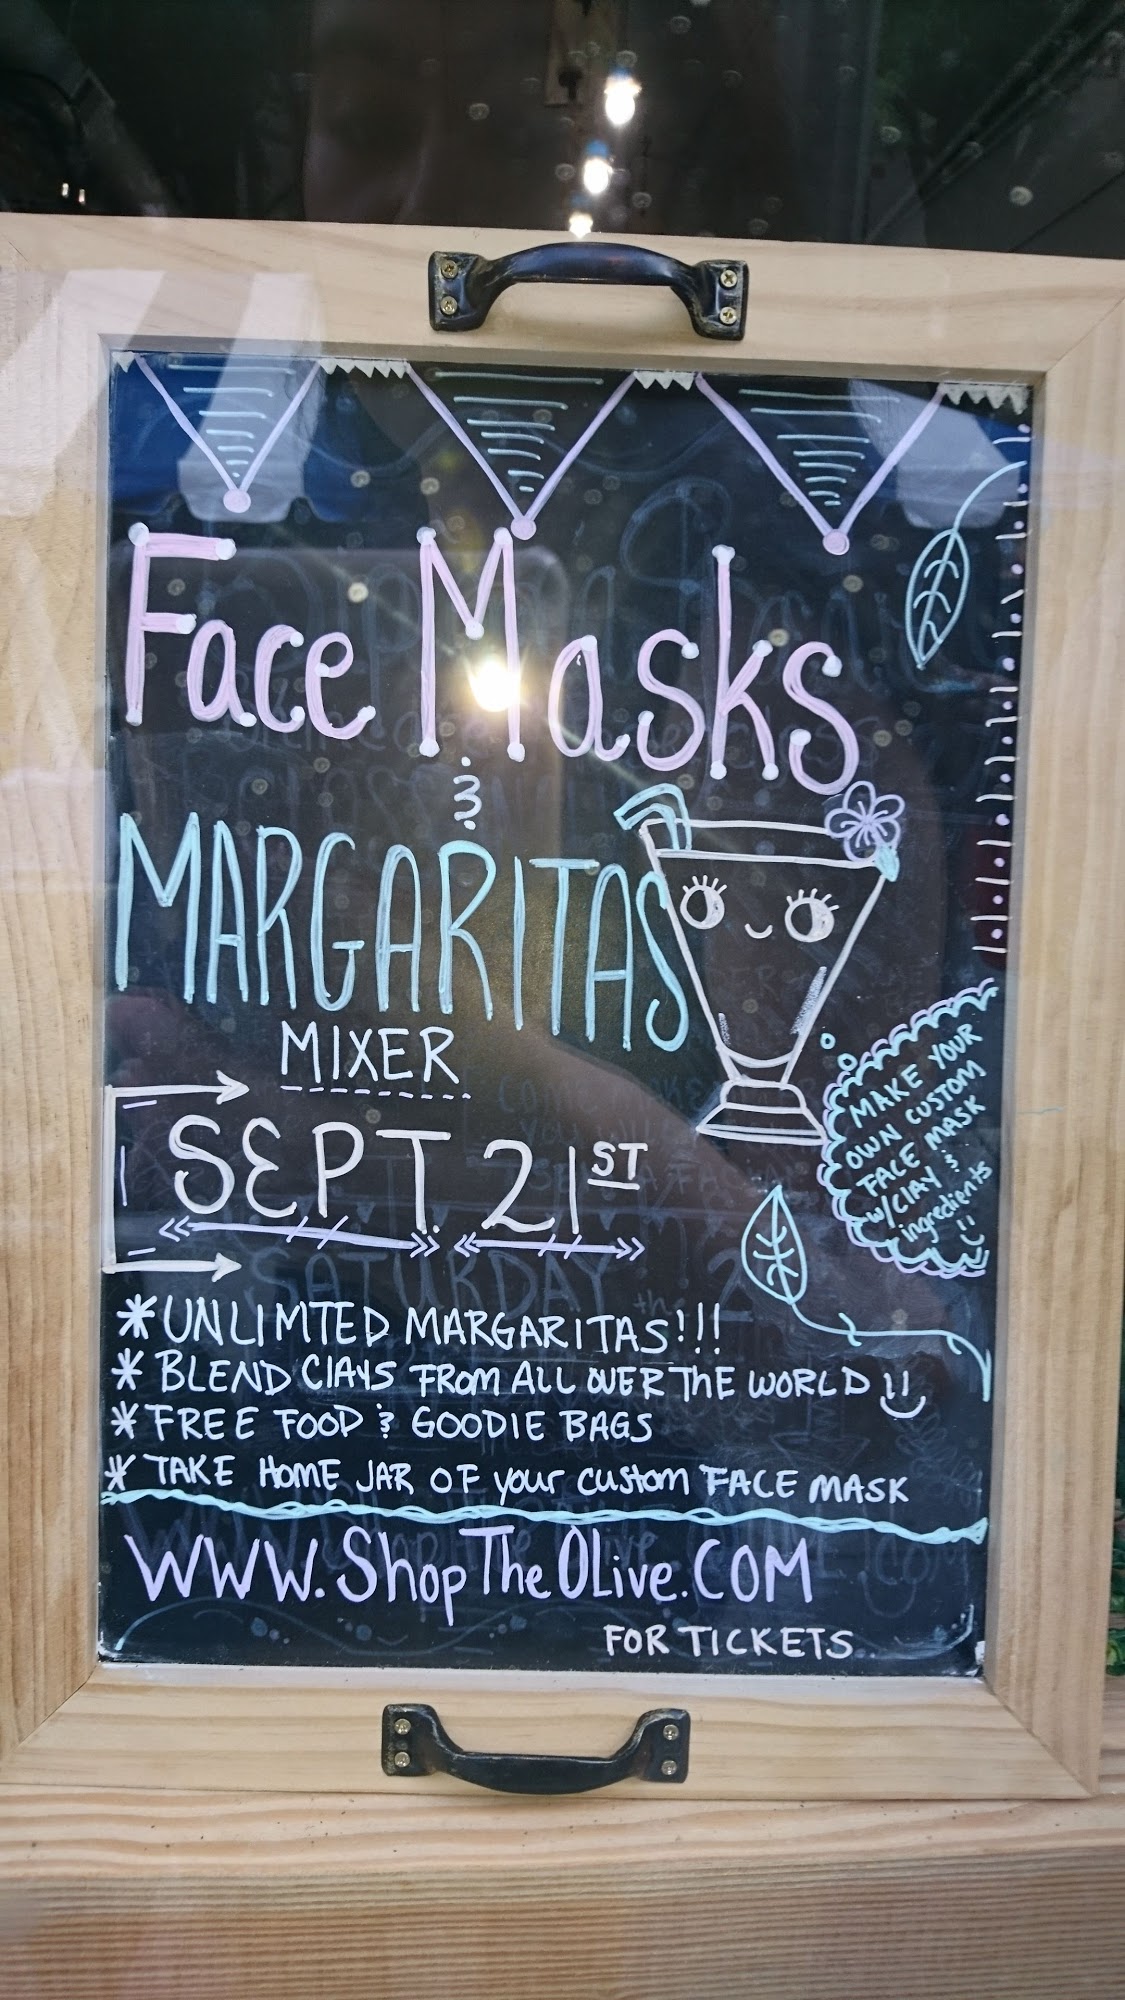 Face Masks
&
MARGARITAS
MIXER
SEPT. 21ST
MAKE YOUR
OWN CUSTOM
FACE MASK
w/CLAY &
ingredients
*UNLIMTED MARGARITAS!!!
*BLEND CLAYS FROM ALL OVER THE WORLD !!
*FREE FOOD & GOODIE BAGS
*TAKE HOME JAR OF your custom FACE MASK
WWW.ShopTheOLive.COM
FOR TICKETS..